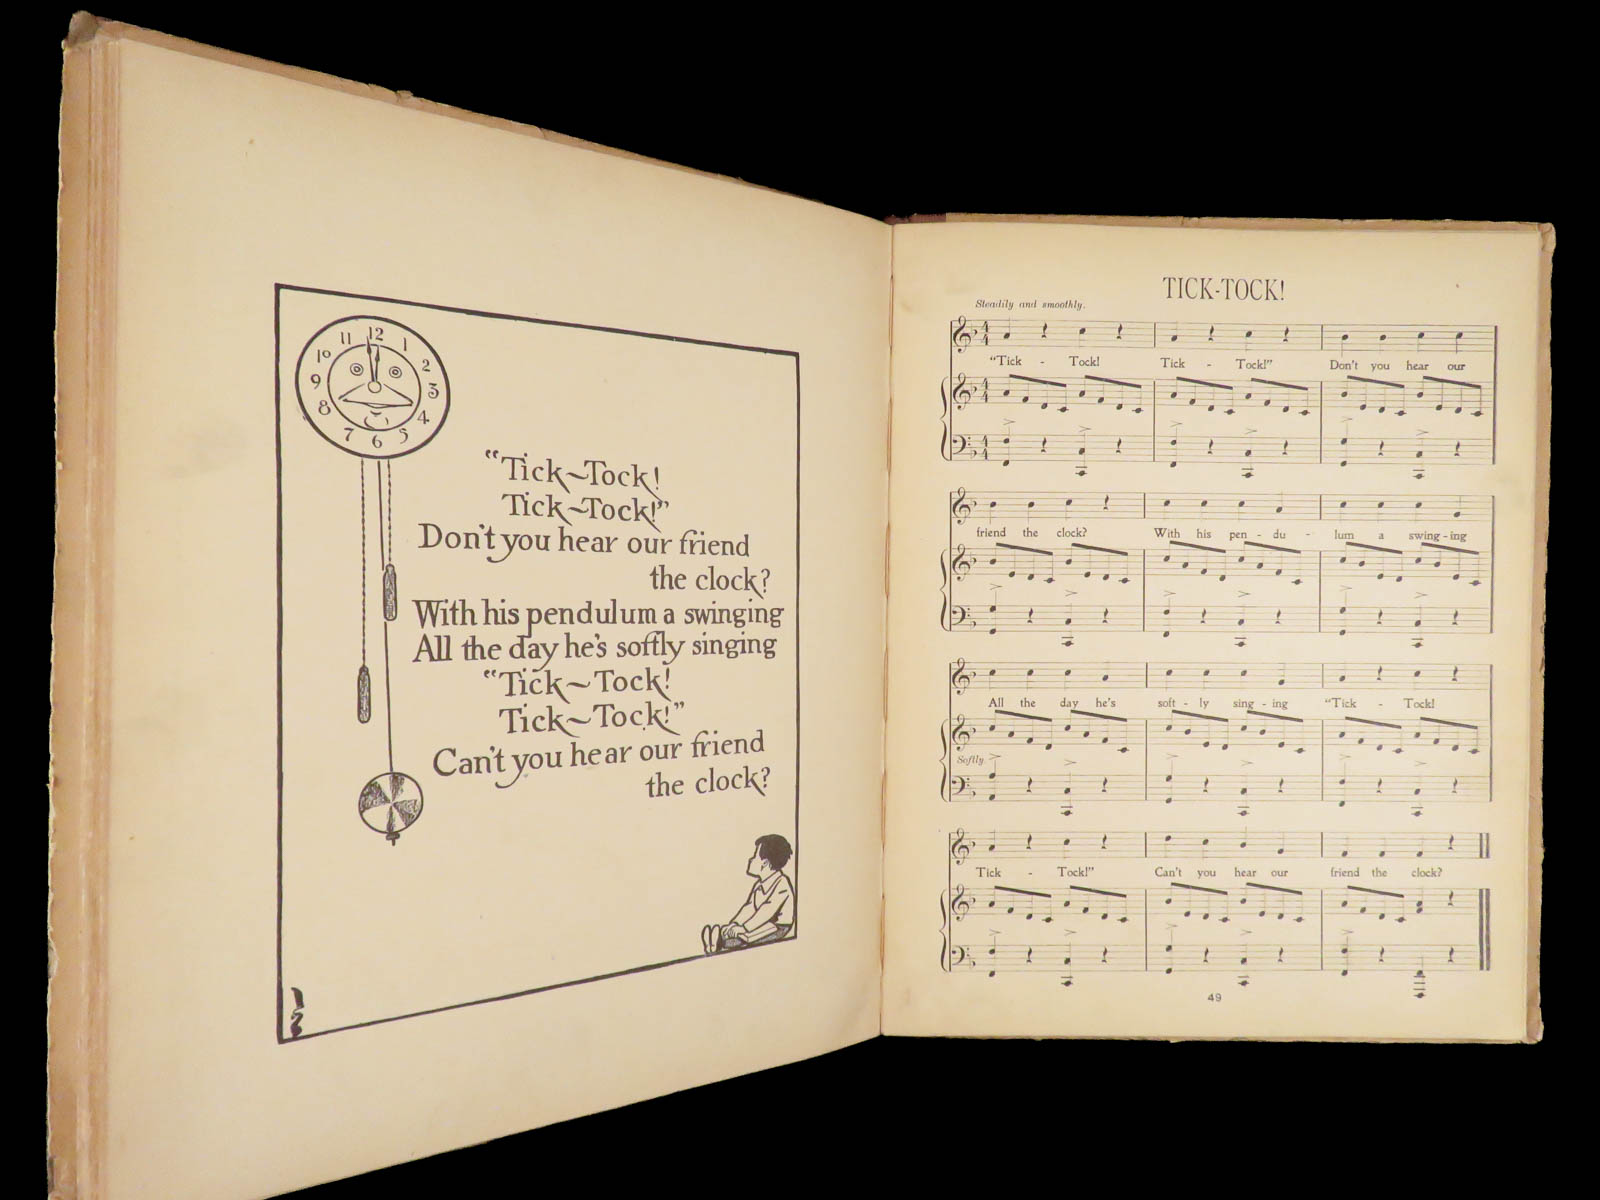 12
1
2
3
4
5
6
7
8
9
10
11
"Tick~Tock!
Tick~Tock!"
Don't you hear our friend
the clock?
With his pendulum a swinging
All the day he's softly singing
"Tick~Tock!
Tick~Tock!"
Can't you hear our friend
the clock?
TICK-TOCK!
Steadily and smoothly.
"Tick - Tock! Tick - Tock!" Don't you hear our
friend the clock? With his pen - du - lum a swing - ing
All the day he's soft - ly sing - ing "Tick - Tock!
Softly
Tick - Tock!" Can't you hear our friend the clock?
49